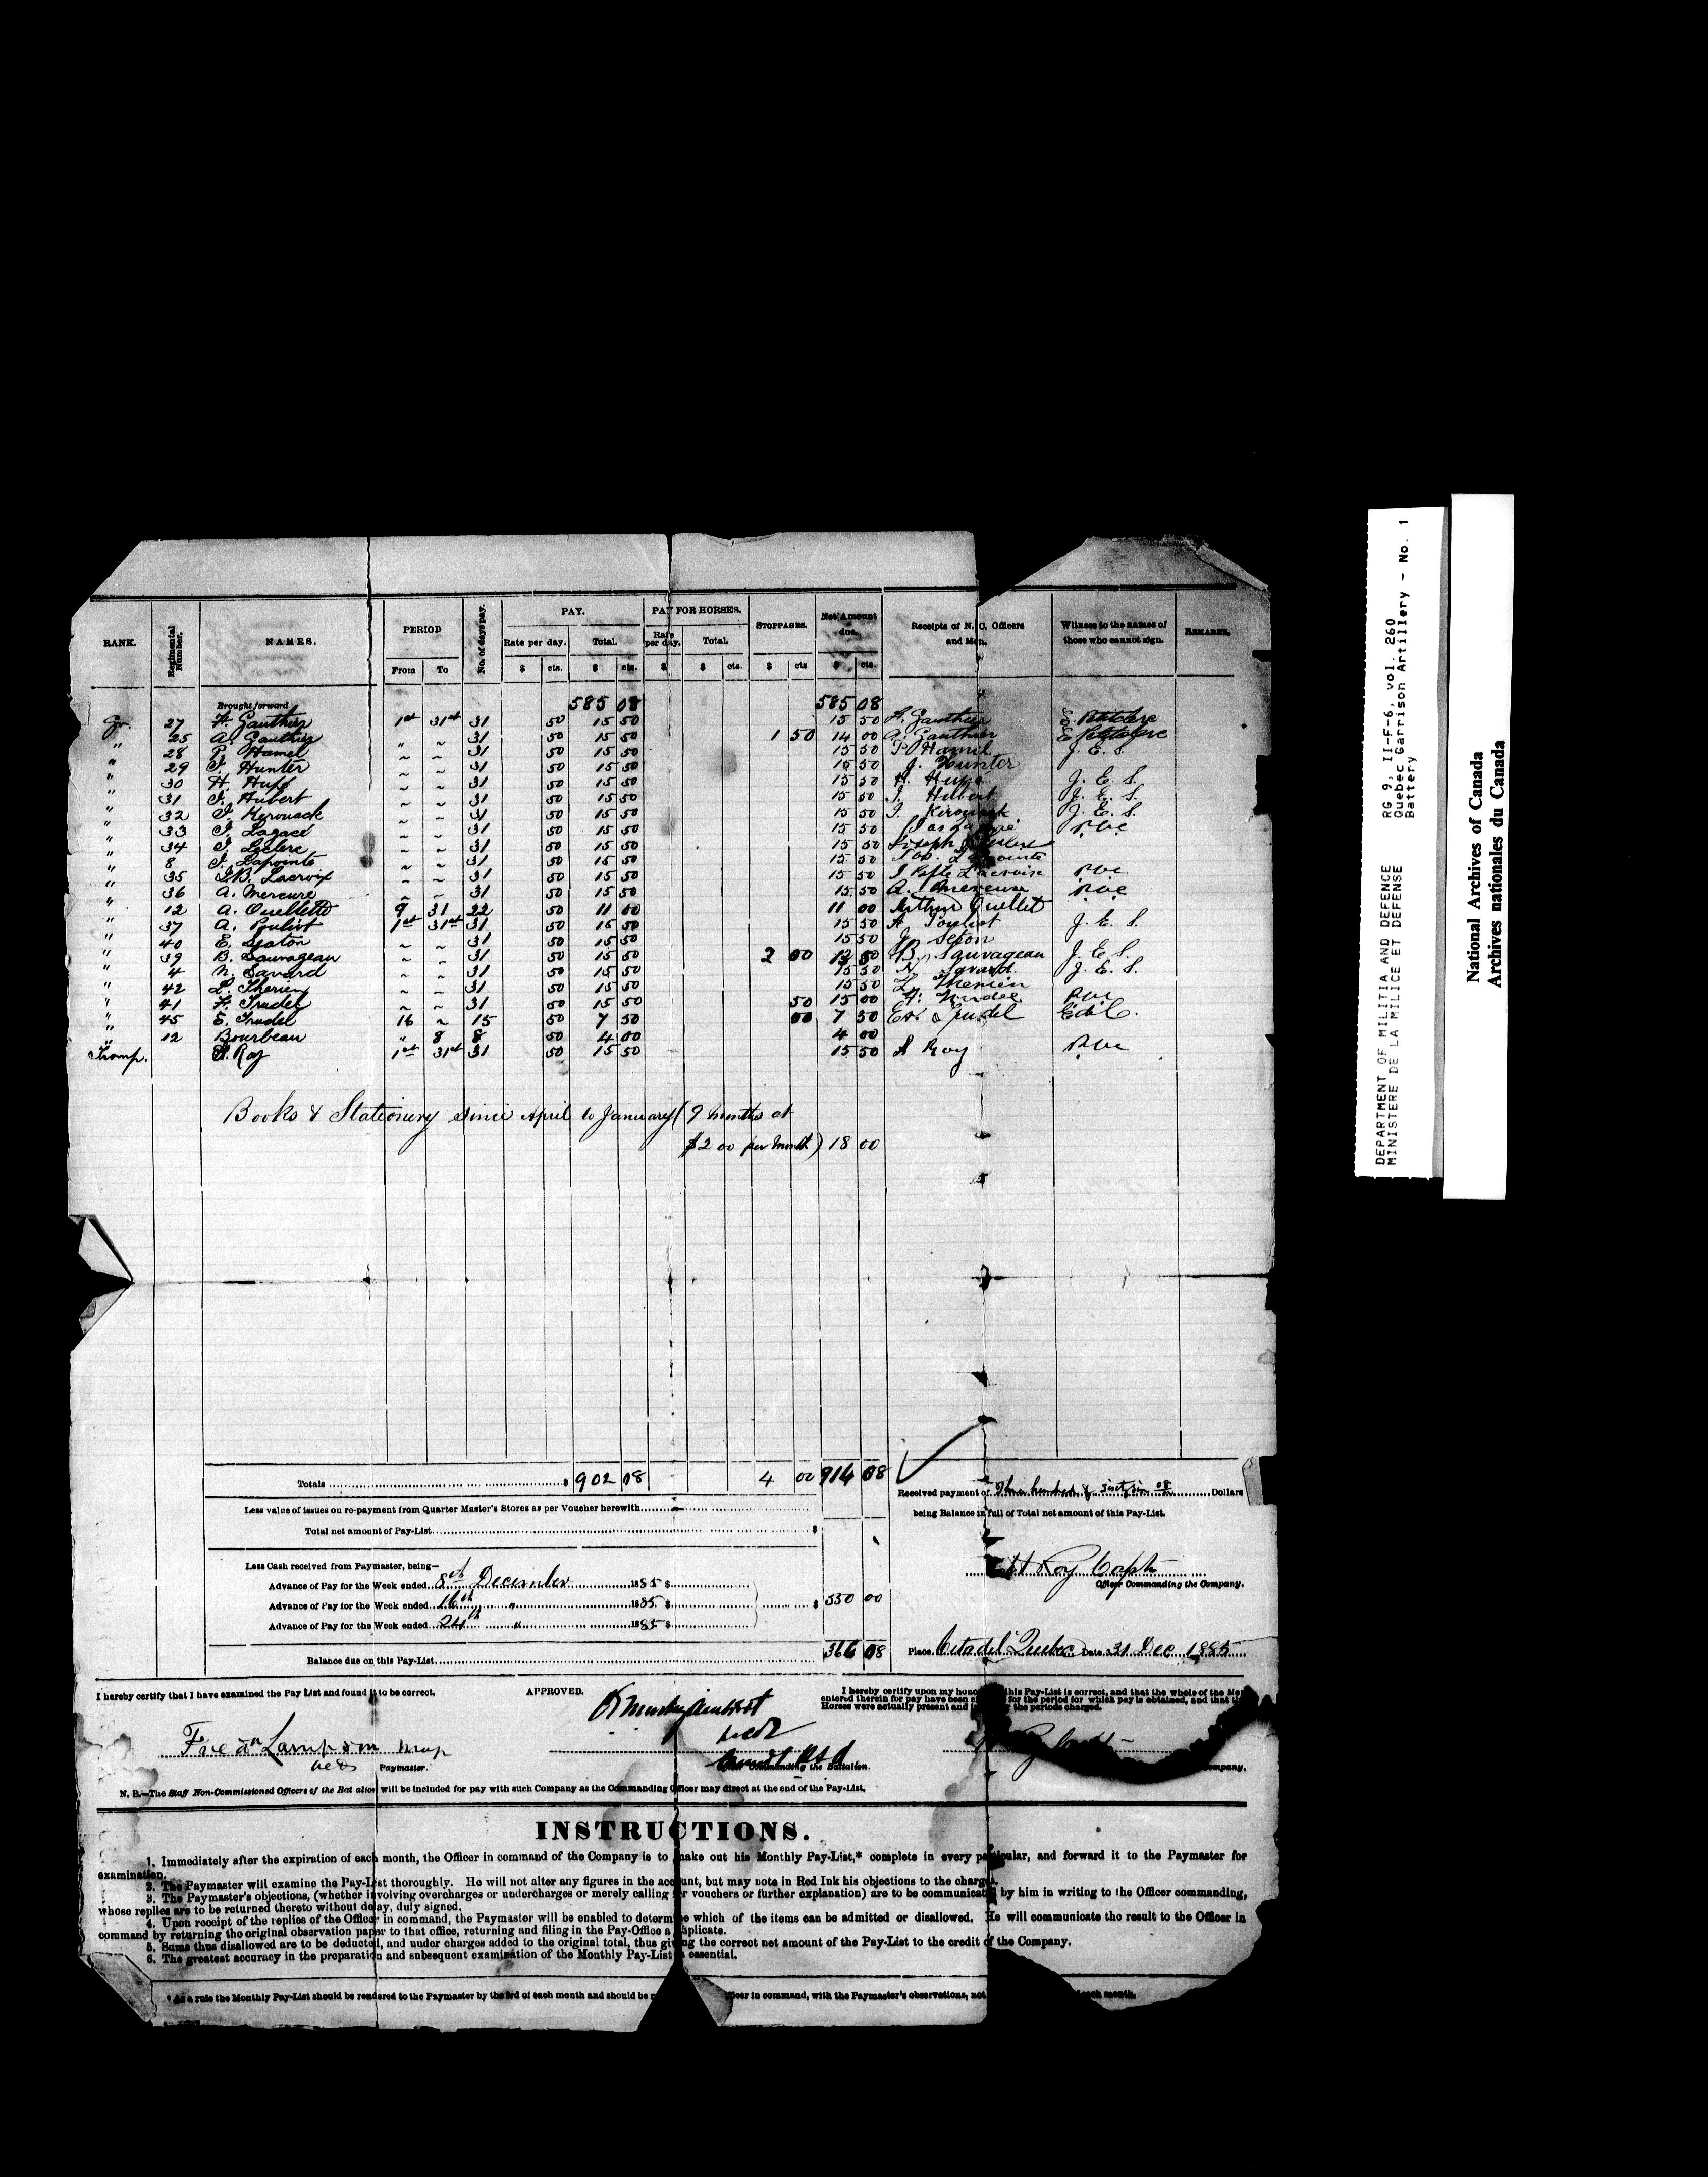 RANK. Regimental Number. NAMES. PERIOD From To No. of days pay. PAY. Rate per day. $ cts. Total. $ cts. PAY FOR HORSES. Rate per day. $ Total. $ cts. STOPPAGES. $ cts Net Amount due. $ cts. Receipts of N. C. Officers and Men. Witness to the names of those who cannot sign. REMARKS.
Brought forward 585 08 585 08
Gr. 27 F. Gauthier 1st 31st 31 50 15 50 15 50 F. Gauthier
" 25 A. Gauthier " ~ 31 50 15 50 1 50 14 00 A. Gauthier
" 28 P. Hamel ~ ~ 31 50 15 50 15 50 P. Hamel J. E. S.
" 29 J. Hunter ~ ~ 31 50 15 50 15 50 J. Hunter
" 30 H. Hupé ~ ~ 31 50 15 50 15 50 H. Hupé J. E. S.
" 31 J. Hubert ~ ~ 31 50 15 50 15 50 J. Hubert J. E. S.
" 32 J. Kerouack ~ ~ 31 50 15 50 15 50 J. J. E. S.
" 33 J. Lagacé ~ ~ 31 50 15 50 15 50
" 34 J. Leclerc ~ ~ 31 50 15 50 15 50 Joseph
" 8 J. Lapointe ~ ~ 31 50 15 50 15 50 Lapointe
" 35 J.B. Lacroix ~ ~ 31 50 15 50 15 50 J Lacroix
" 36 A. Mercure ~ ~ 31 50 15 50 15 50 A. Mercure
" 12 A. Ouellette 9 31 22 50 11 00 11 00 Arthur Ouellet
" 37 A. Pouliot 1st 31st 31 50 15 50 15 50 A Pouliot J. E. S.
" 40 E. Seaton ~ ~ 31 50 15 50 15 50 Seton
" 39 B. Sauvageau ~ ~ 31 50 15 50 2 00 13 50 B. Sauvageau J. E. S.
" 4 N. Savard ~ ~ 31 50 15 50 15 50 N. Savard J. E. S.
" 42 L. Therien ~ ~ 31 50 15 50 15 50 L. Therien
" 41 F. Trudel ~ ~ 31 50 15 50 50 15 00 F. Trudel
" 45 E. Trudel 16 ~ 15 50 7 50 00 7 50 Trudel
" 12 Bourbeau " 8 8 50 4 00 4 00
Tromp. A. Roy 1st 31st 31 50 15 50 15 50 A Roy
Books & Stationery since April to January (9 months at
$2 00 per month) 18 00
Totals $ 902 08 4 00 914 08
Received payment of Three hundred & sixty six 08 Dollars
Less value of issues on re-payment from Quarter Master's Stores as per Voucher herewith
being Balance in full of Total net amount of this Pay-List.
Total net amount of Pay-List $
Less Cash received from Paymaster, being—
H Roy Capt
Officer Commanding the Company.
Advance of Pay for the Week ended 8th December 1885 $
Advance of Pay for the Week ended 16th " 1885 $ $ 550 00
Advance of Pay for the Week ended 24th " 1885 $
Balance due on this Pay-List 366 08
Place. Citadel Quebec Date. 31 Dec 1885
I hereby certify that I have examined the Pay List and found it to be correct.
APPROVED.
I hereby certify upon my honor this Pay-List is correct, and that the whole of the Men
entered therein for pay have been for the period for which pay is obtained, and that
Horses were actually present and the periods charged.
Lampson
Paymaster.
Commanding the Battalion.
Company.
N. B.—The Staff Non-Commissioned Officers of the Battalion will be included for pay with such Company as the Commanding Officer may direct at the end of the Pay-List.
INSTRUCTIONS.
1. Immediately after the expiration of each month, the Officer in command of the Company is to make out his Monthly Pay-List,* complete in every particular, and forward it to the Paymaster for
examination.
2. The Paymaster will examine the Pay-List thoroughly. He will not alter any figures in the account, but may note in Red Ink his objections to the charges.
3. The Paymaster's objections, (whether involving overcharges or undercharges or merely calling for vouchers or further explanation) are to be communicated by him in writing to the Officer commanding,
whose replies are to be returned thereto without delay, duly signed.
4. Upon receipt of the replies of the Officer in command, the Paymaster will be enabled to determine which of the items can be admitted or disallowed. He will communicate the result to the Officer in
command by returning the original observation paper to that office, returning and filing in the Pay-Office a duplicate.
5. Sums thus disallowed are to be deducted, and under charges added to the original total, thus giving the correct net amount of the Pay-List to the credit of the Company.
6. The greatest accuracy in the preparation and subsequent examination of the Monthly Pay-List is essential.
* As a rule the Monthly Pay-List should be rendered to the Paymaster by the 3rd of each month and should be Officer in command, with the Paymaster's observations, not each month.
DEPARTMENT OF MILITIA AND DEFENCE RG 9, II-F-6, vol. 260
MINISTERE DE LA MILICE ET DEFENSE Quebec Garrison Artillery - No. 1
Battery
National Archives of Canada
Archives nationales du Canada